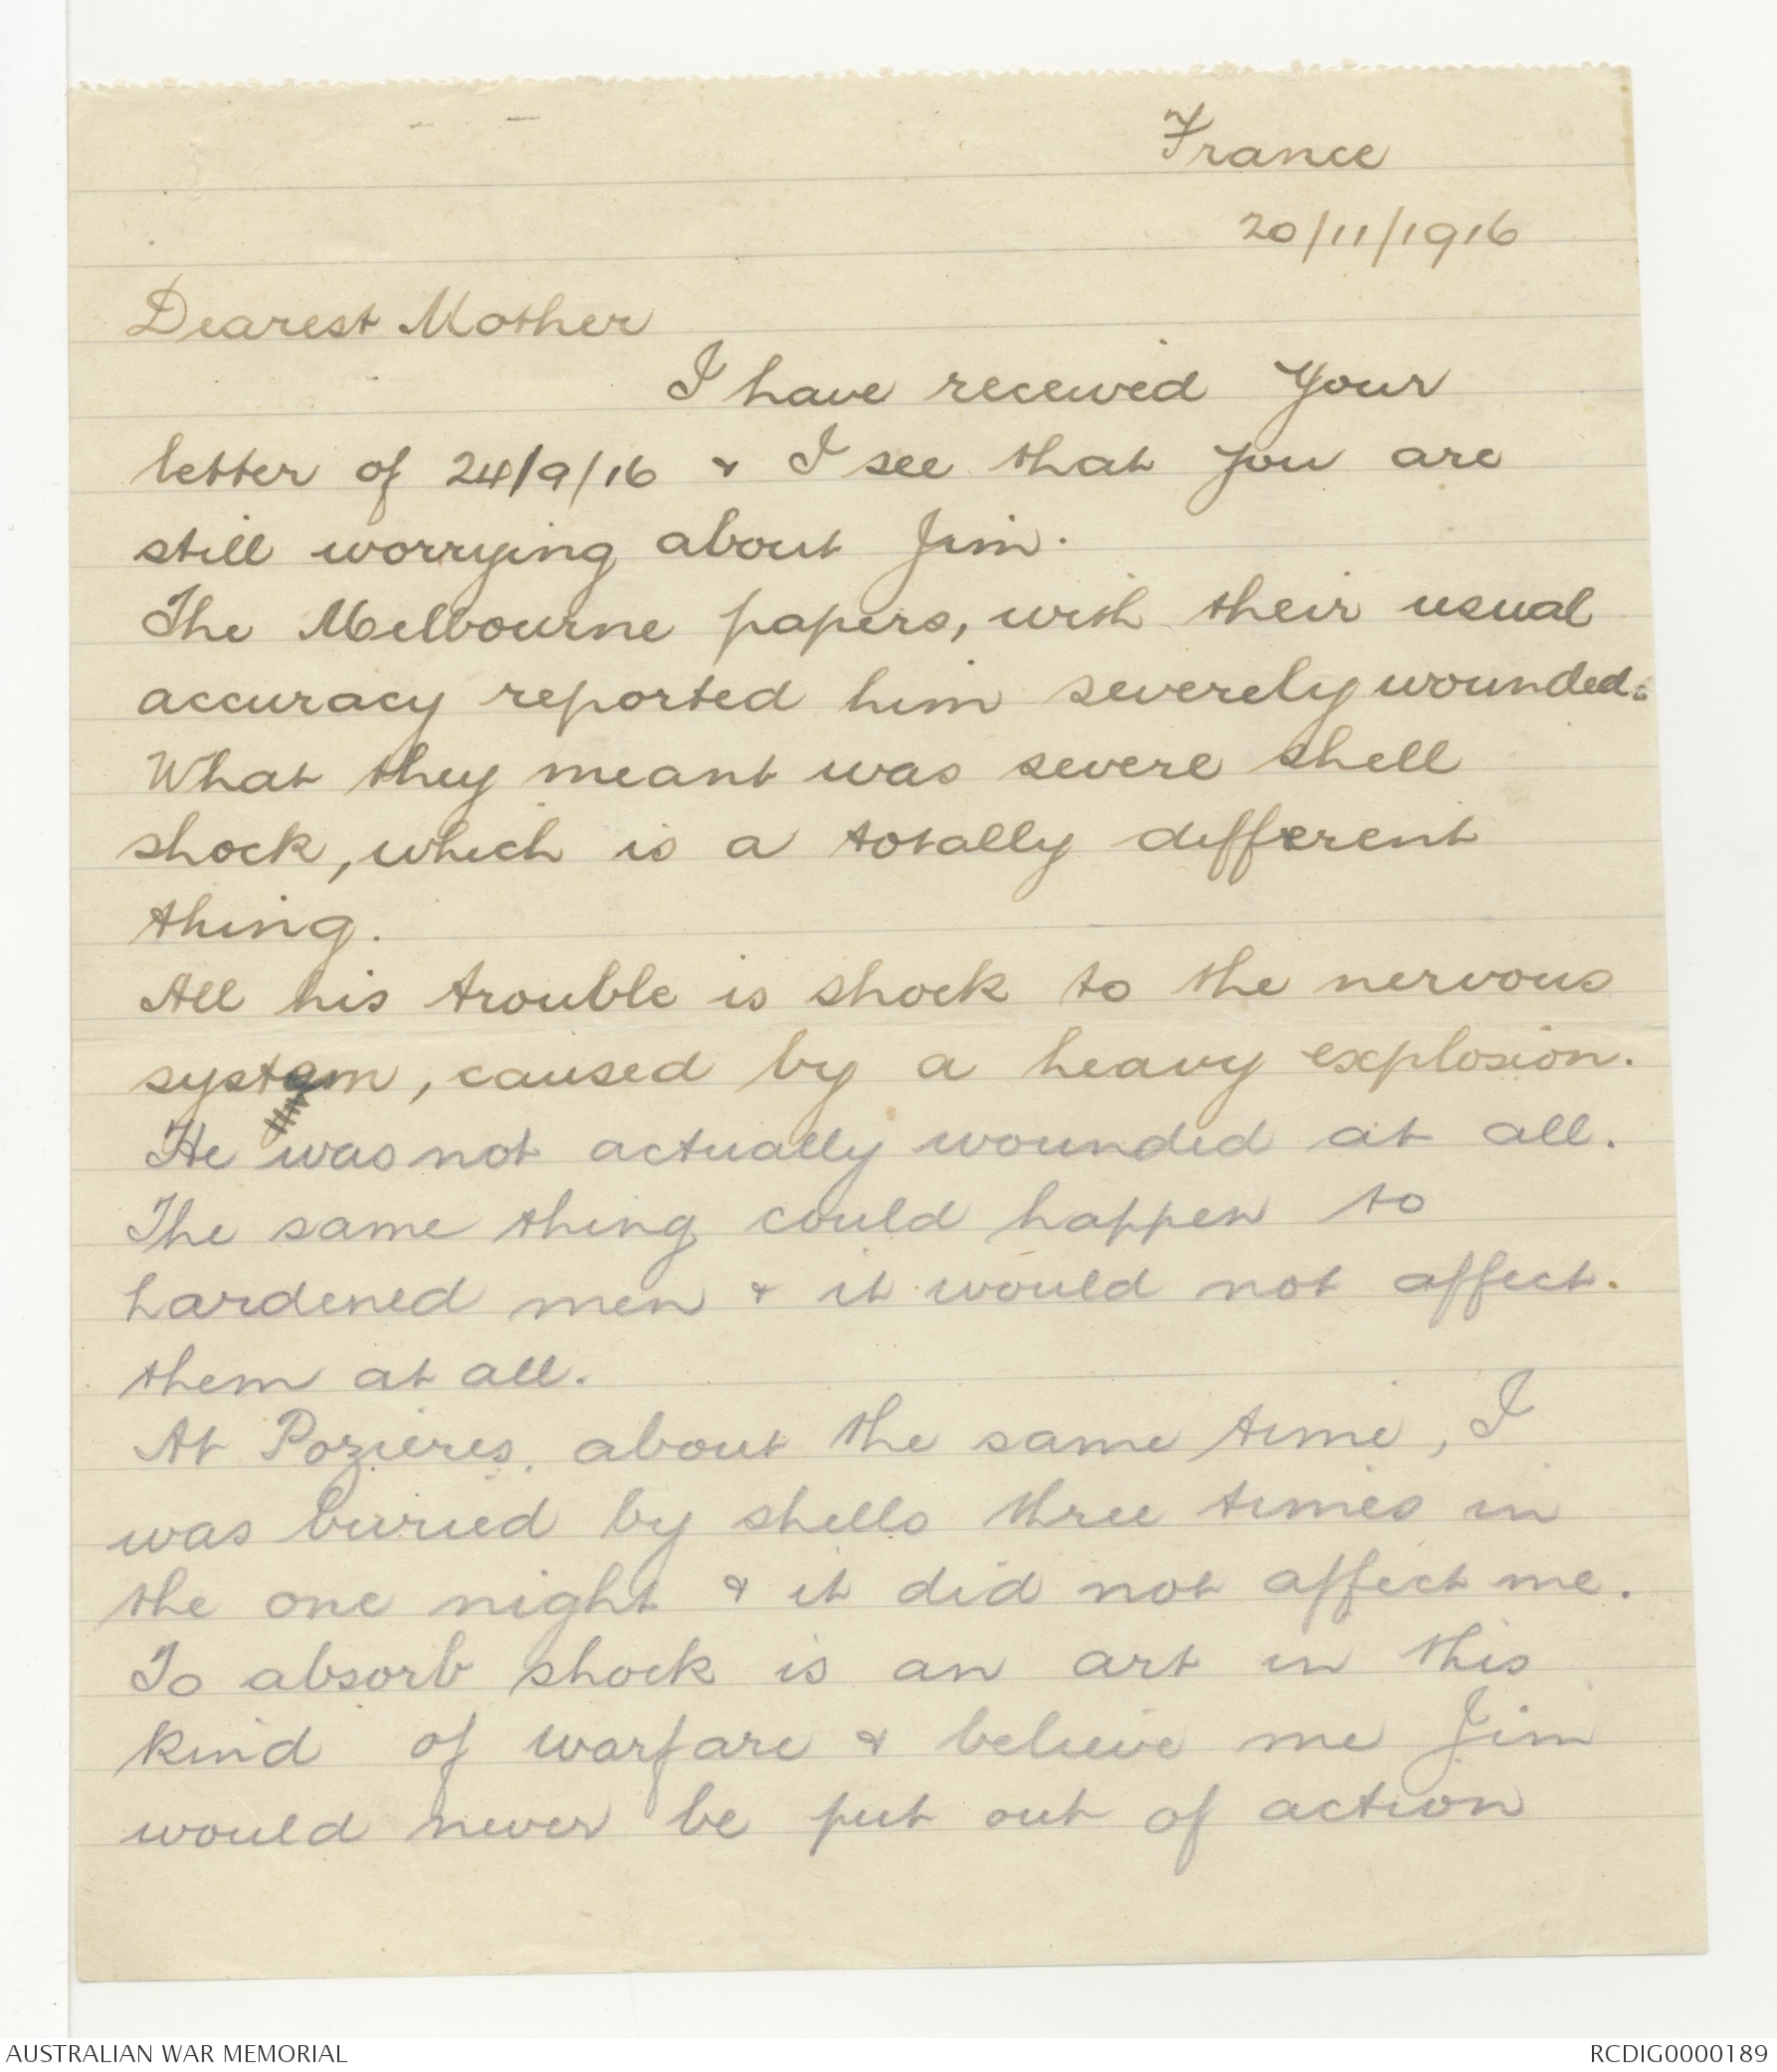 France
20/11/1916
Dearest Mother
I have received your
letter of 24/9/16 & I see that you are
still worrying about Jim.
The Melbourne papers, with their usual
accuracy reported him severely wounded.
What they meant was severe shell
shock, which is a totally different
thing.
All his trouble is shock to the nervous
system, caused by a heavy explosion.
He was not actually wounded at all.
The same thing could happen to
hardened men & it would not affect.
them at all.
At Pozieres, about the same time, I
was buried by shells three times in
the one night & it did not affect me.
To absorb shock is an art in this
kind of warfare & believe me Jim
would never be put out of action
AUSTRALIAN WAR MEMORIAL
RCDIG0000189